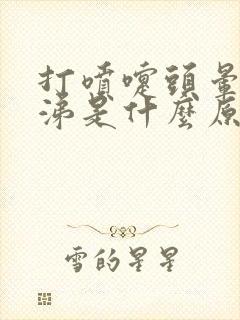 打噴嚏頭暈
涕是什麼原
雪的星星